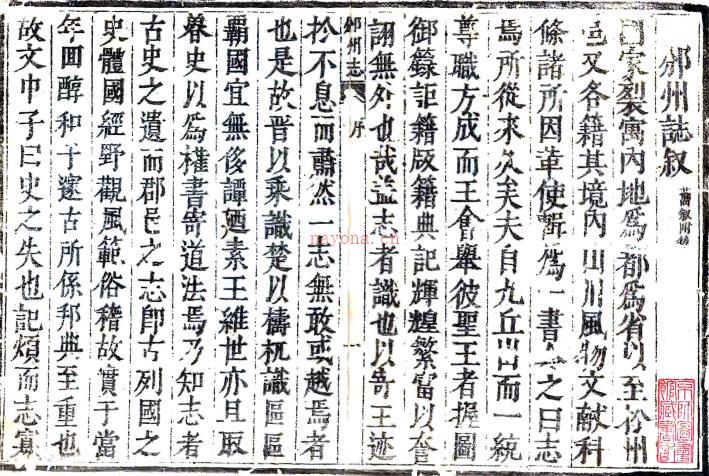 邠州誌叙
舊叙附移
國家裂寓内地為都為省以至於州
邑又各籍其境内山川風物文献科
條諸所因革使輯為一書命之曰志
焉所從来久矣夫自九丘出而一統
尊職方成而王會舉彼聖王者握圖
御籙詎籍版籍典記輝煌繁富以奢
詡無外也哉盖志者識也以寄王迹
邠州志
序
一
於不息而肅然一志無敢或越焉者
也是故晋以乘識楚以檮杌識區區
覇國宜無後譚廼素王維世亦且取
春史以爲權書寄道法焉乃知志者
古史之遺而郡邑之志即古列國之
史體國經野觀風範俗稽故實于當
年回醇和于邃古所係邦典至重也
故文中子曰史之失也記煩而志寡
nayona.cn